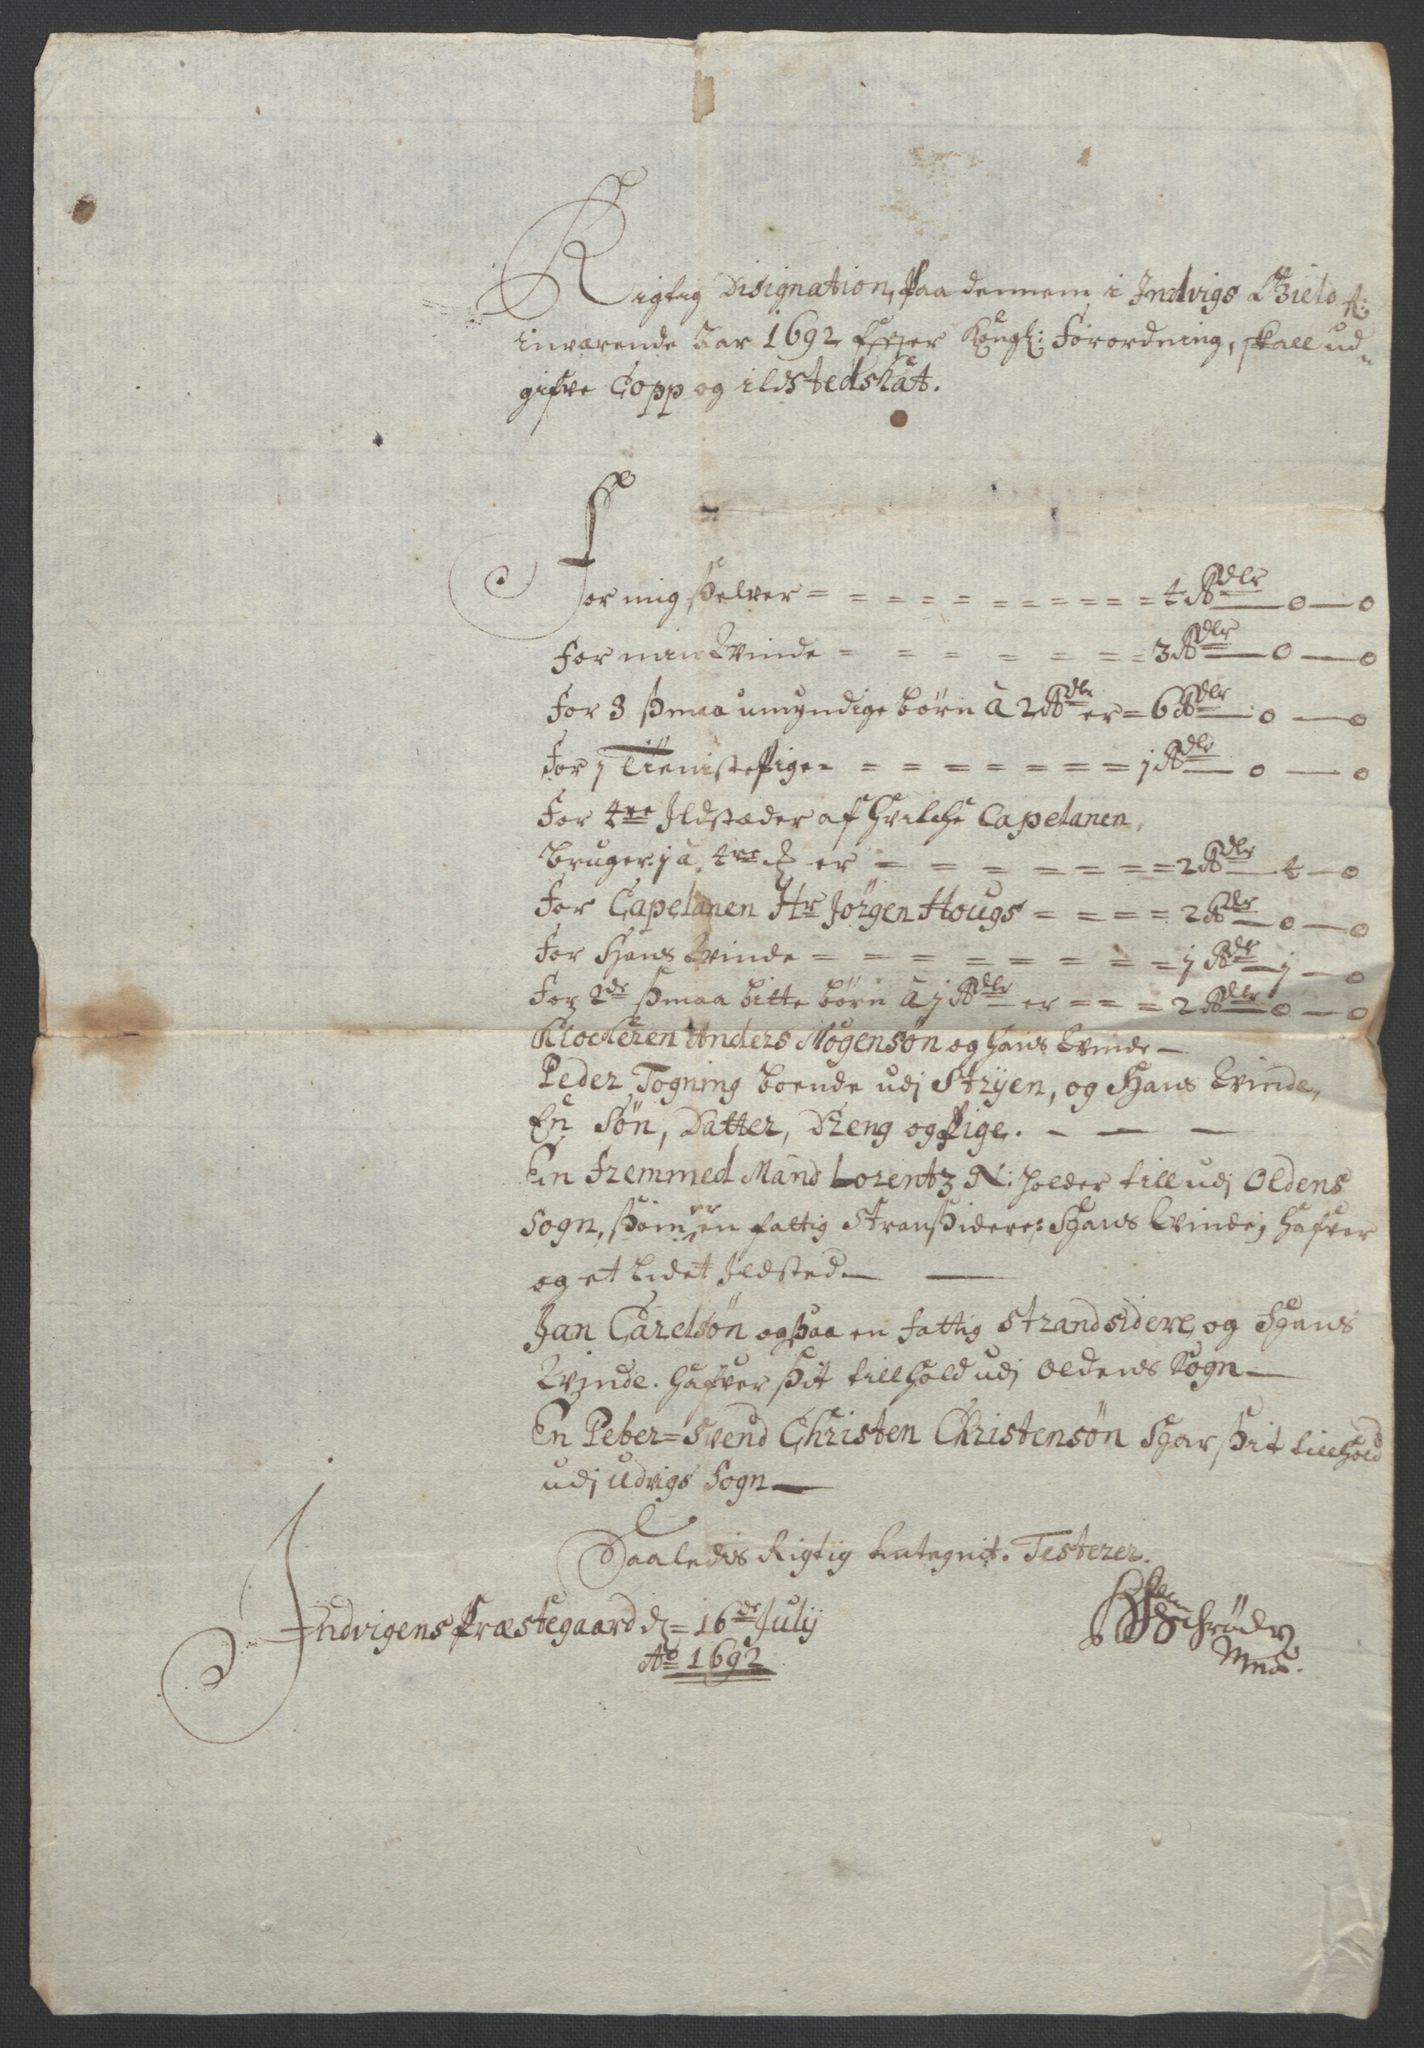 Rigtig Disignation, paa dennem i Indvigs Gield
inværende Aar 1692 efter Kongl: Forordning, skall ud„
gifve Copp og ildstedskat.
For mig Sielver = = = = = = = = = = = 4 Rdlr — o — o
For min Kvinde = = = = = = = 3 Rdlr — o — o
For 3 smaa umyndige børn à 2 Rdlr er = 6 Rdlr — o — o
For 1 Tienistepige = = = = = = = = 1 Rdlr — o — o
For 4re Ildstæder af hvilche Capelanen,
bruger 1 à 4re er = = = = = = = 2 Rdlr — 4 — o
For Capelanen Hr Jørgen Hougs = = = = 2 Rdlr — o — o
For Hans Kvinde = = = = = = = = 1 Rdlr — 1 — o
For 2de smaa bitte børn à 1 Rdlr er = = = 2 Rdlr — o — o
Klockeren Anders Mogensøn og hans Kvinde —
Peder Togning boende udj Stryen, og Hans Kvinde,
En Søn, Datter, Dreng og Pige. — — —
En Fremmed Mand Lorentz N: holder till udj Oldens
Sogn, som er en fattig Stransidere: Hans Kvinde, hafver
og et Lidet Ildsted — —
Jan Carelsøn ogsaa en fattig Strandsidere, og Hans
Kvinde. hafver sit tillhold udj Oldens Sogn —
En Peber=Svend Christen Christensøn Har sit tillhold
udj Udvigs Sogn —
Saaledis Rigtig Antegnit. Testerer.
Indvigens Præstegaard d = 16de Julij
Ao 1692
Schrøder
Mpia.